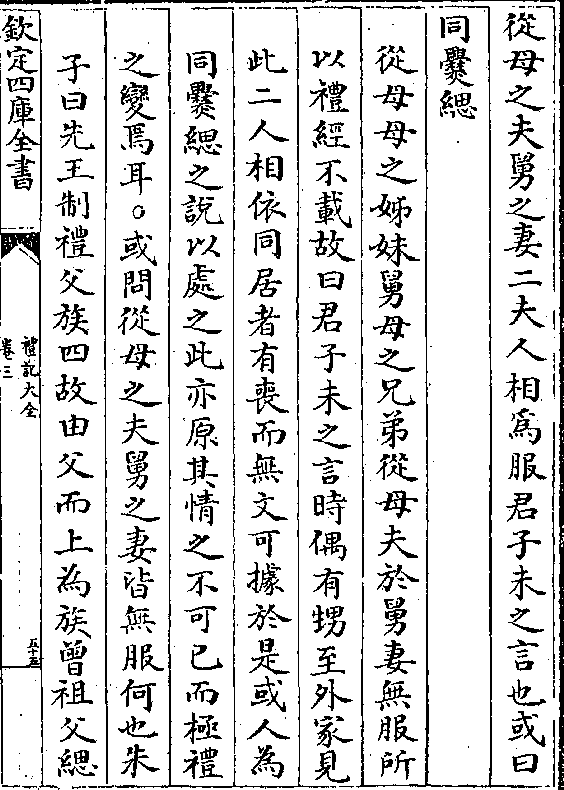 從母之夫舅之妻二夫人相爲服君子未之言也或曰
同爨緦
從母母之姊妹舅母之兄弟從母夫於舅妻無服所
以禮經不載故曰君子未之言時偶有甥至外家見
此二人相依同居者有喪而無文可據於是或人為
同爨緦之說以處之此亦原其情之不可已而極禮
之變焉耳○或問從母之夫舅之妻皆無服何也朱
子曰先王制禮父族四故由父而上為族曾祖父緦
欽定四庫全書
禮記大全
卷三
五十五